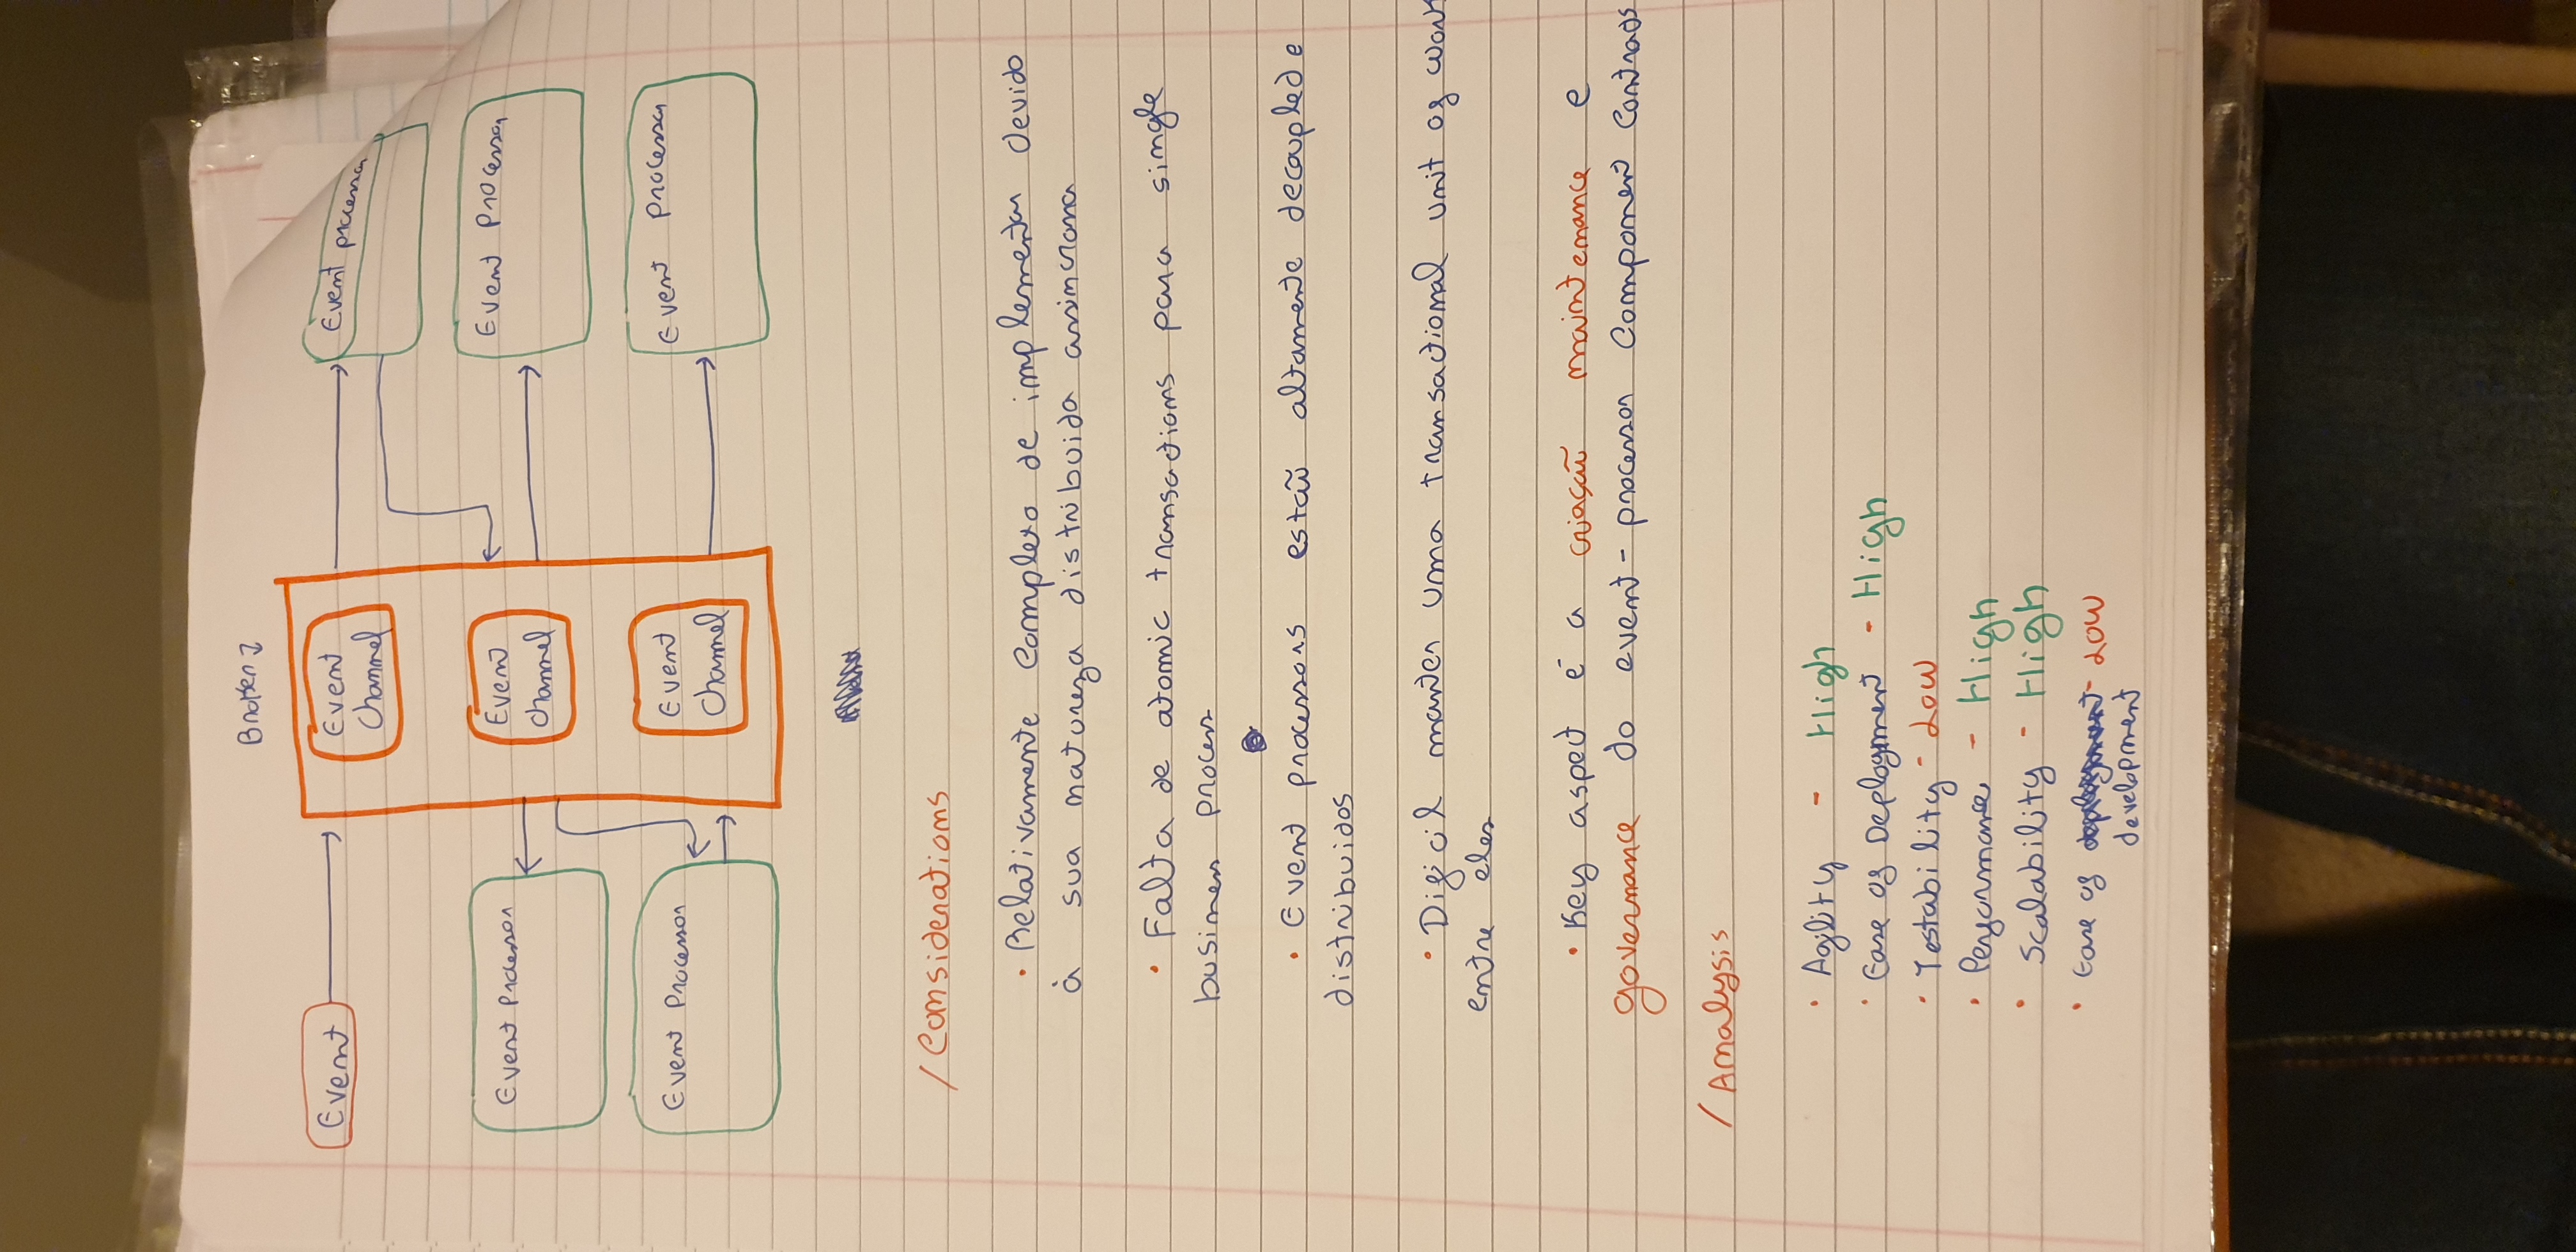 Broker
Event
Event
Channel
Event processor
Event Processor
Event
Channel
Event Processor
Event Processor
Event
Channel
Event Processor
/ Considerations
• Relativamente complexo de implementar devido
à sua natureza distribuida assincrona
• Falta de atomic transactions para single
business process
• Event processors estão altamente decoupled e
distribuidos
• Dificil manter uma transactional unit of work
entre eles
• Key aspect é a criação maintenance e
governance do event-processor component contracts
/ Analysis
• Agility - High
• Ease of Deployment - High
• Testability - Low
• Performance - High
• Scalability - High
• Ease of deployment - Low
development